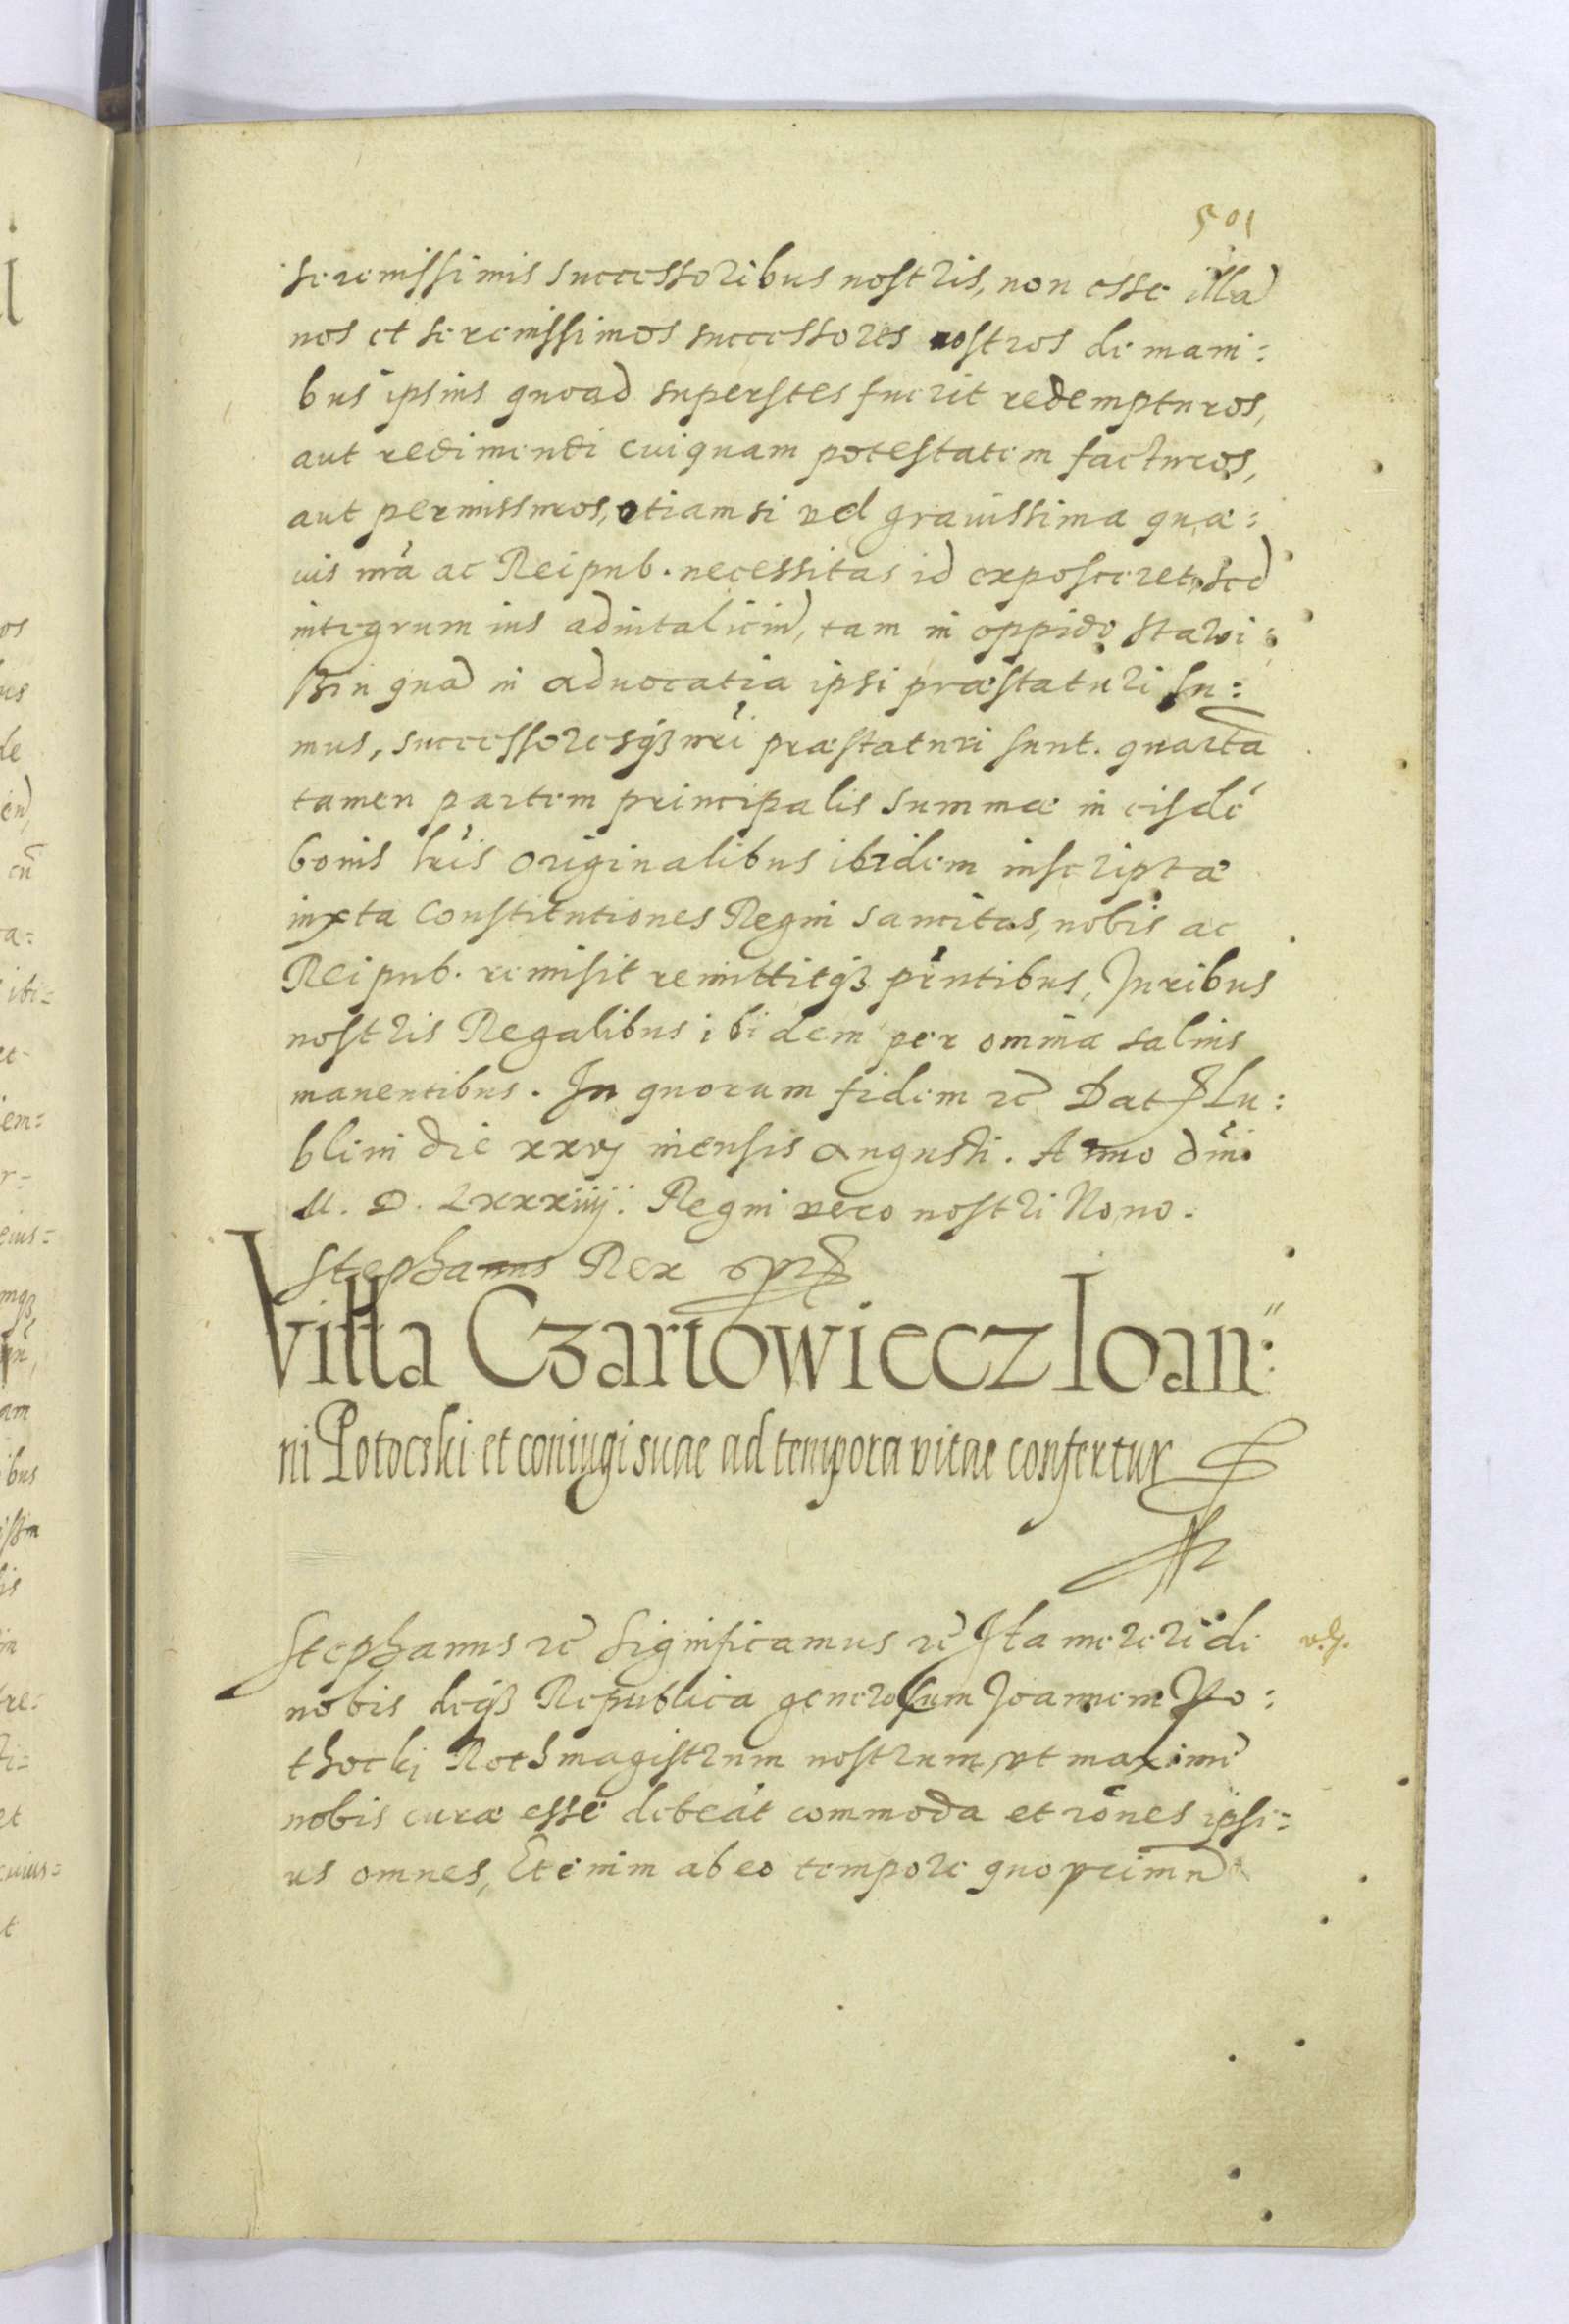 501
serenissimis successoribus nostris, non esse illa
nos et serenissimos successores nostros de mani:
bus ipsius quoad superstes fuerit redempturos,
aut redimendi cuiquam potestatem facturos,
aut permissuros, etiamsi vel grauissima quæ:
uis nrā ac Reipub. necessitas id exposceret, sed
integrum ius aduitaliciū, tam in oppido Stawi:
ßin quā in aduocatia ipsi præstaturi su:
mus, successoresqꝫ nrī præstaturi sunt. quartā
tamen partem principalis summæ in eisdē
bonis lrīs originalibus ibidem inscriptæ
iuxta Constitutiones Regni sancitas, nobis ac
Reipub. remisit remittitqꝫ pr̄ntibus, Juribus
nostris Regalibus ibidem per omnia saluis
manentibus. In quorum fidem ꝛc̄ Dat Lu:
blini die xxvj mensis Augusti. Anno dn̄i
M. D. Lxxxiiij. Regni vero nostri Nono.
Stephanus Rex
Villa Czartowiecz Ioan:
ni Potocski et coniugi suae ad tempora vitae confertur
Stephanus ꝛc̄ Significamus ꝛc̄ Ita mereri de
nobis deqꝫ Republica generosum Joannem Po:
thocki Rothmagistrum nostrum, vt maxime
nobis curæ esse debeāt commoda et rōnes ipsi:
us omnes, Etenim ab eo tempore quo primū